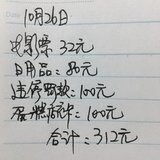 10月26日
电影票 32元
日用品=80元
违停罚款=100元
蛋糕店卡=100元
合计=312元